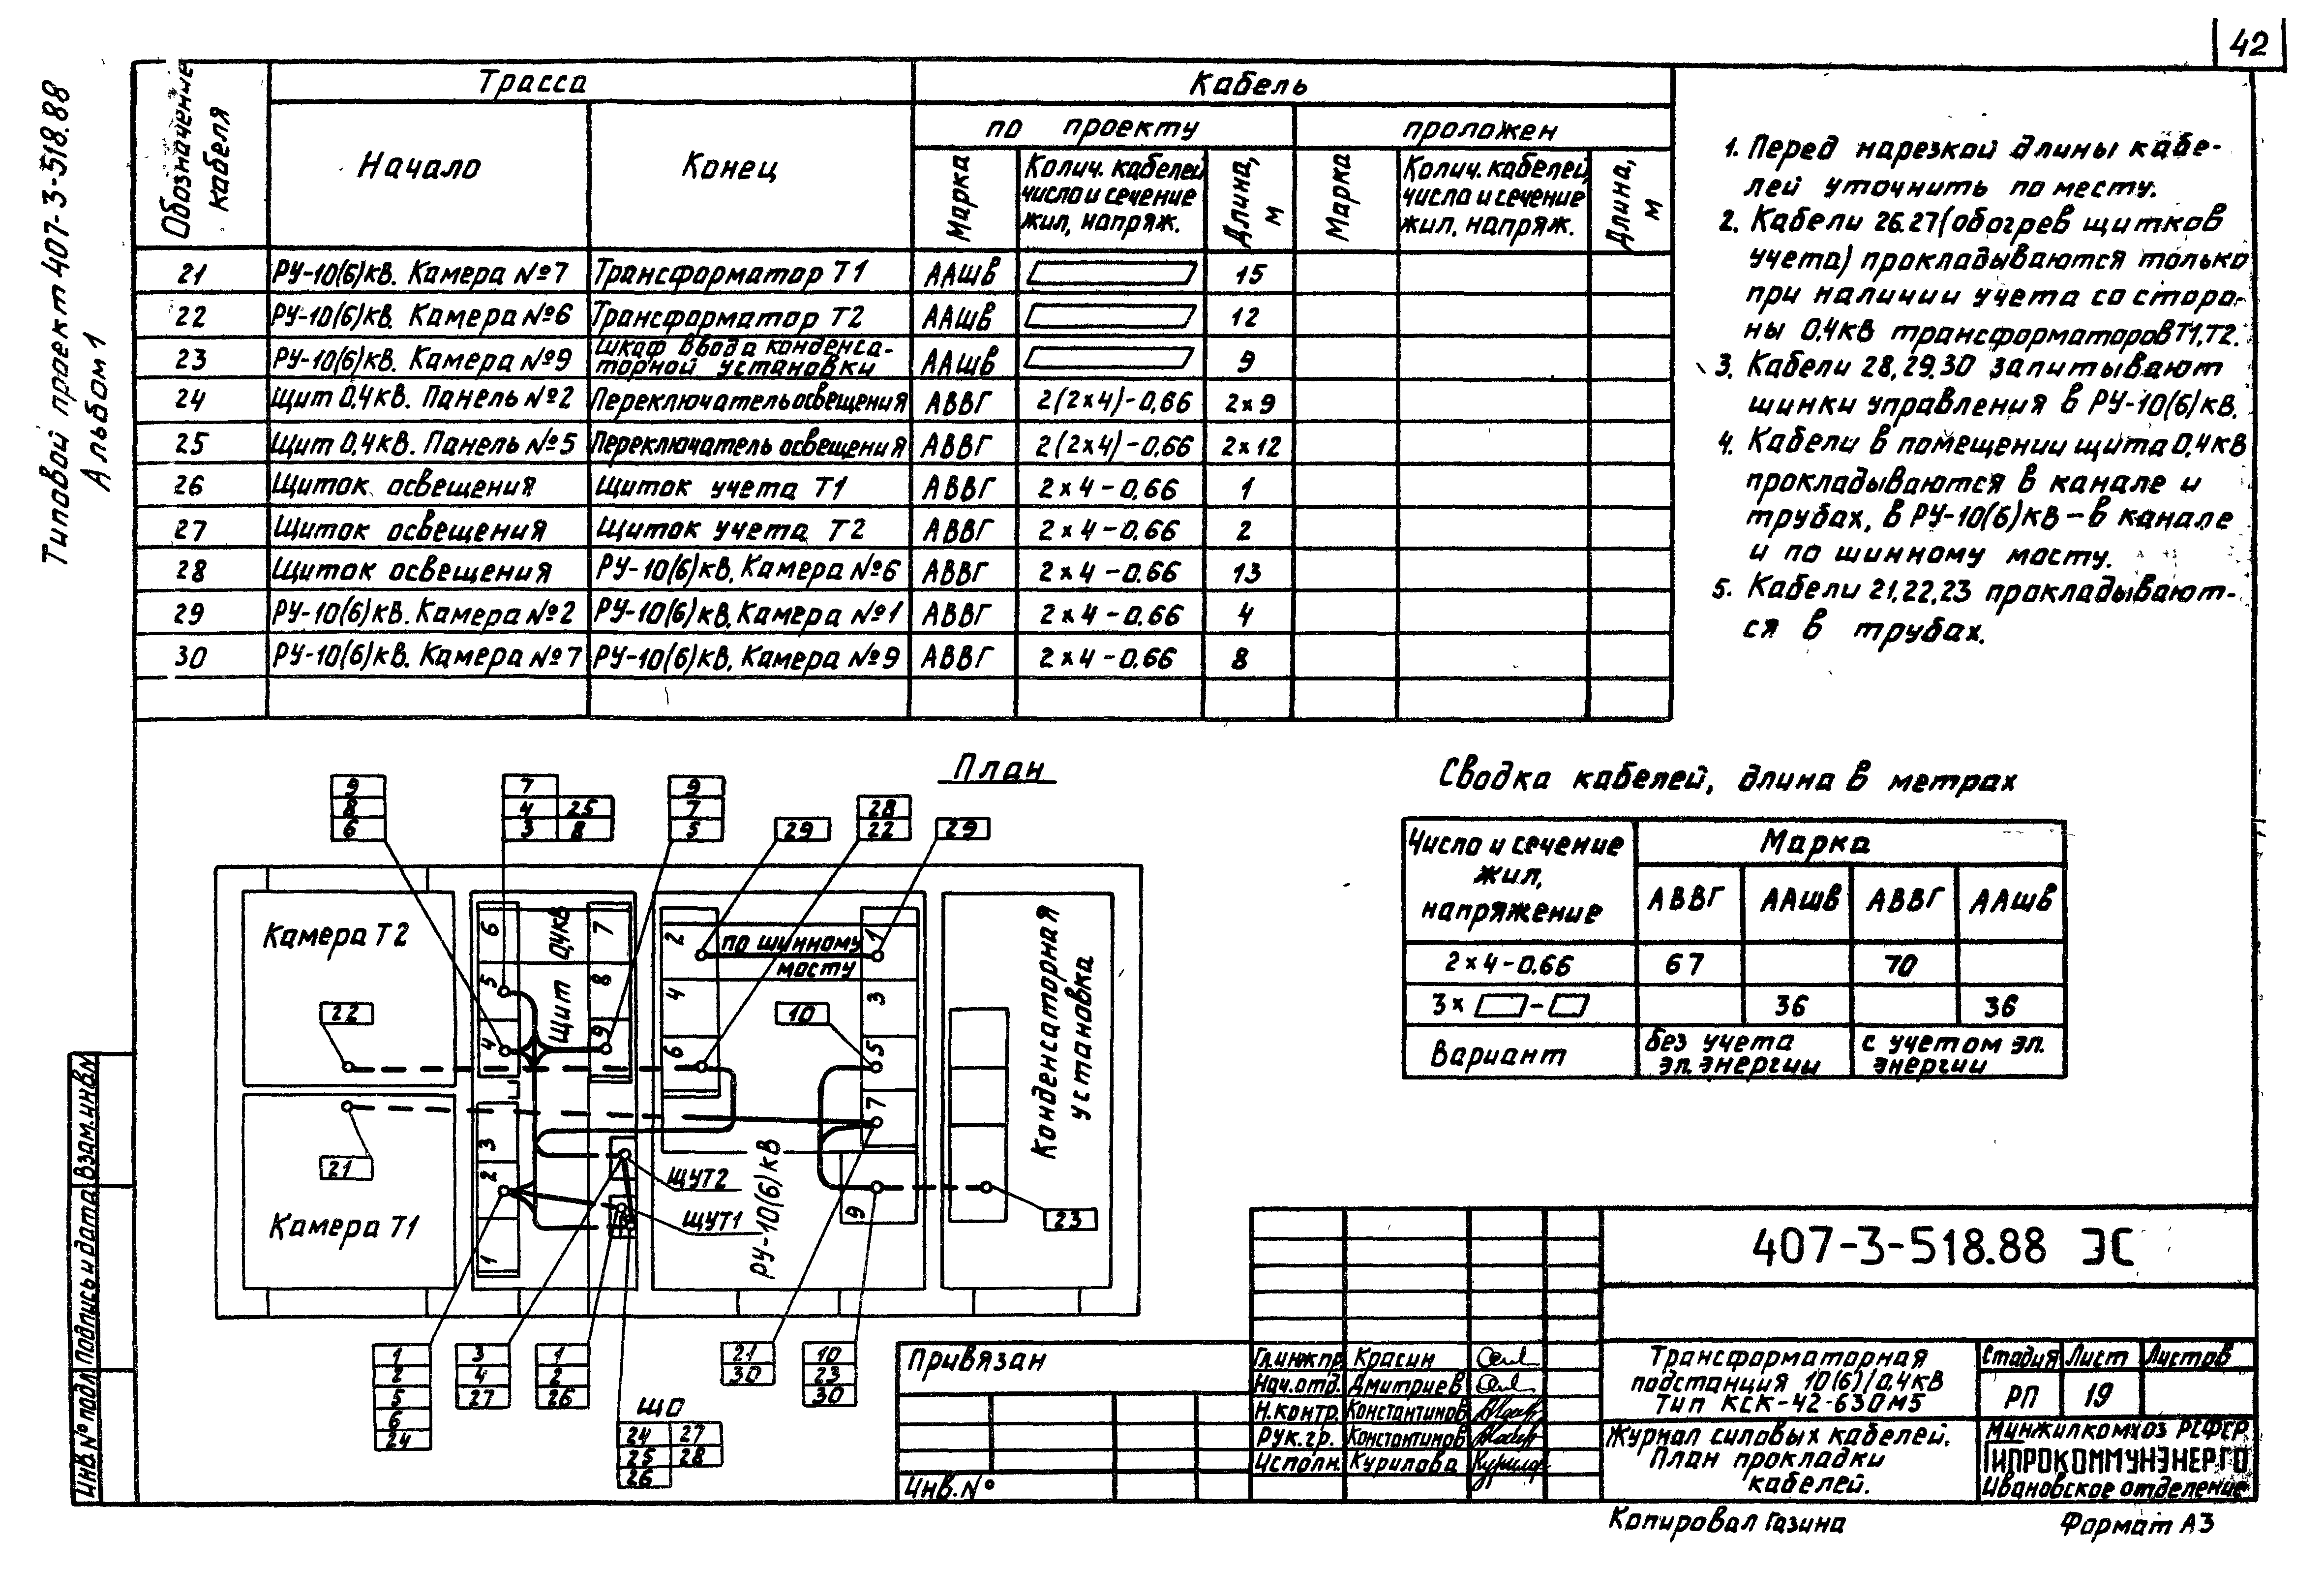 42
Типовой проект 407-3-518.88
Альбом 1
Обозначение кабеля
Трасса
Кабель
Начало
Конец
по проекту
проложен
Марка
Колич. кабелей, число и сечение жил, напряж.
Длина, м
Марка
Колич. кабелей, число и сечение жил, напряж.
Длина, м
21 РУ-10(6)кВ. Камера №7 Трансформатор Т1 ААШВ 15
22 РУ-10(6)кВ. Камера №6 Трансформатор Т2 ААШВ 12
23 РУ-10(6)кВ. Камера №9 Шкаф ввода конденсаторной установки ААШВ 9
24 Щит 0,4кВ. Панель №2 Переключатель освещения АВВГ 2(2х4)-0,66 2х9
25 Щит 0,4кВ. Панель №5 Переключатель освещения АВВГ 2(2х4)-0,66 2х12
26 Щиток освещения Щиток учета Т1 АВВГ 2х4-0,66 1
27 Щиток освещения Щиток учета Т2 АВВГ 2х4-0,66 2
28 Щиток освещения РУ-10(6)кВ, Камера №6 АВВГ 2х4-0,66 13
29 РУ-10(6)кВ. Камера №2 РУ-10(6)кВ, Камера №1 АВВГ 2х4-0,66 4
30 РУ-10(6)кВ. Камера №7 РУ-10(6)кВ, Камера №9 АВВГ 2х4-0,66 8
1. Перед нарезкой длины кабе-
лей уточнить по месту.
2. Кабели 26,27(обогрев щитков
учета) прокладываются только
при наличии учета со сторо-
ны 0,4кВ трансформаторов Т1,Т2.
3. Кабели 28,29,30 запитывают
шинки управления в РУ-10(6)кВ.
4. Кабели в помещении щита 0,4кВ
прокладываются в канале и
трубах, в РУ-10(6)кВ-в канале
и по шинному мосту.
5. Кабели 21,22,23 прокладывают-
ся в трубах.
План
9
8
6
7
4 25
3 8
9
7
5
29
28
22
29
Камера Т2
22
21
Камера Т1
6
5
4
3
2
1
Щит 0,4кВ
7
8
9
2
4
6
по шинному
мосту
1
3
5
7
9
10
ЩУТ2
ЩУТ1
РУ-10(6)кВ
Конденсаторная
установка
23
1
2
5
6
24
3
4
27
1
2
26
ЩО
24 27
25 28
26
21
30
10
23
30
Сводка кабелей, длина в метрах
Число и сечение жил, напряжение
Марка
АВВГ ААШВ АВВГ ААШВ
2х4-0,66 67 70
3х - 36 36
Вариант без учета эл.энергии с учетом эл. энергии
407-3-518.88 ЭС
Привязан
Инв.№
Гл.инж.пр. Красин
Нач.отд. Дмитриев
Н.контр. Константинов
Рук.гр. Константинов
Исполн. Курилова
Трансформаторная
подстанция 10(6)/0,4кВ
Тип КСК-42-630М5
Стадия Лист Листов
РП 19
Журнал силовых кабелей.
План прокладки
кабелей.
Минжилкомхоз РСФСР
ГИПРОКОММУНЭНЕРГО
Ивановское отделение
Копировал Газина
Формат А3
Инв.№ подл. Подпись и дата Взам.инв.№